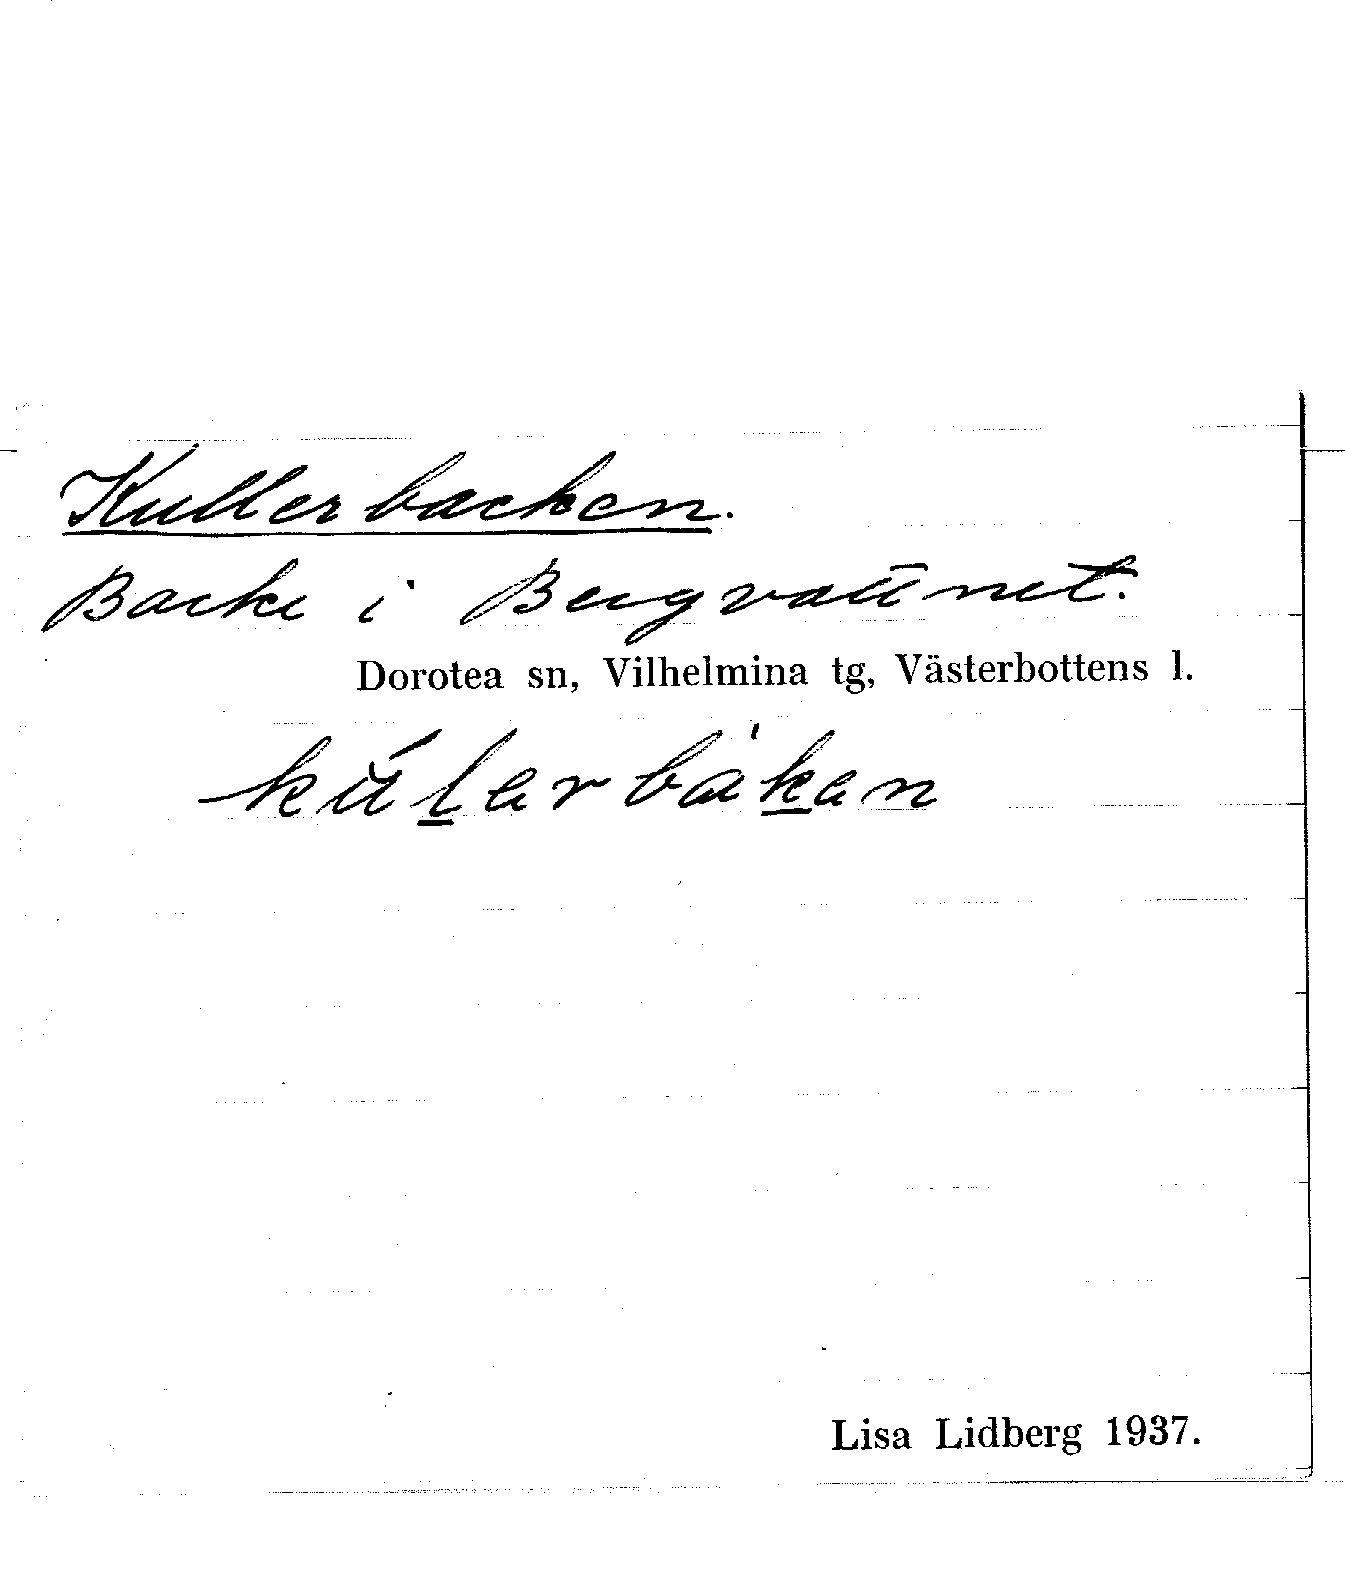 Kullerbacken.
Backe i Bergvattnet.
Dorotea sn, Vilhelmina tg, Västerbottens l.
kúl̲erbàk̲en
Lisa Lidberg 1937.